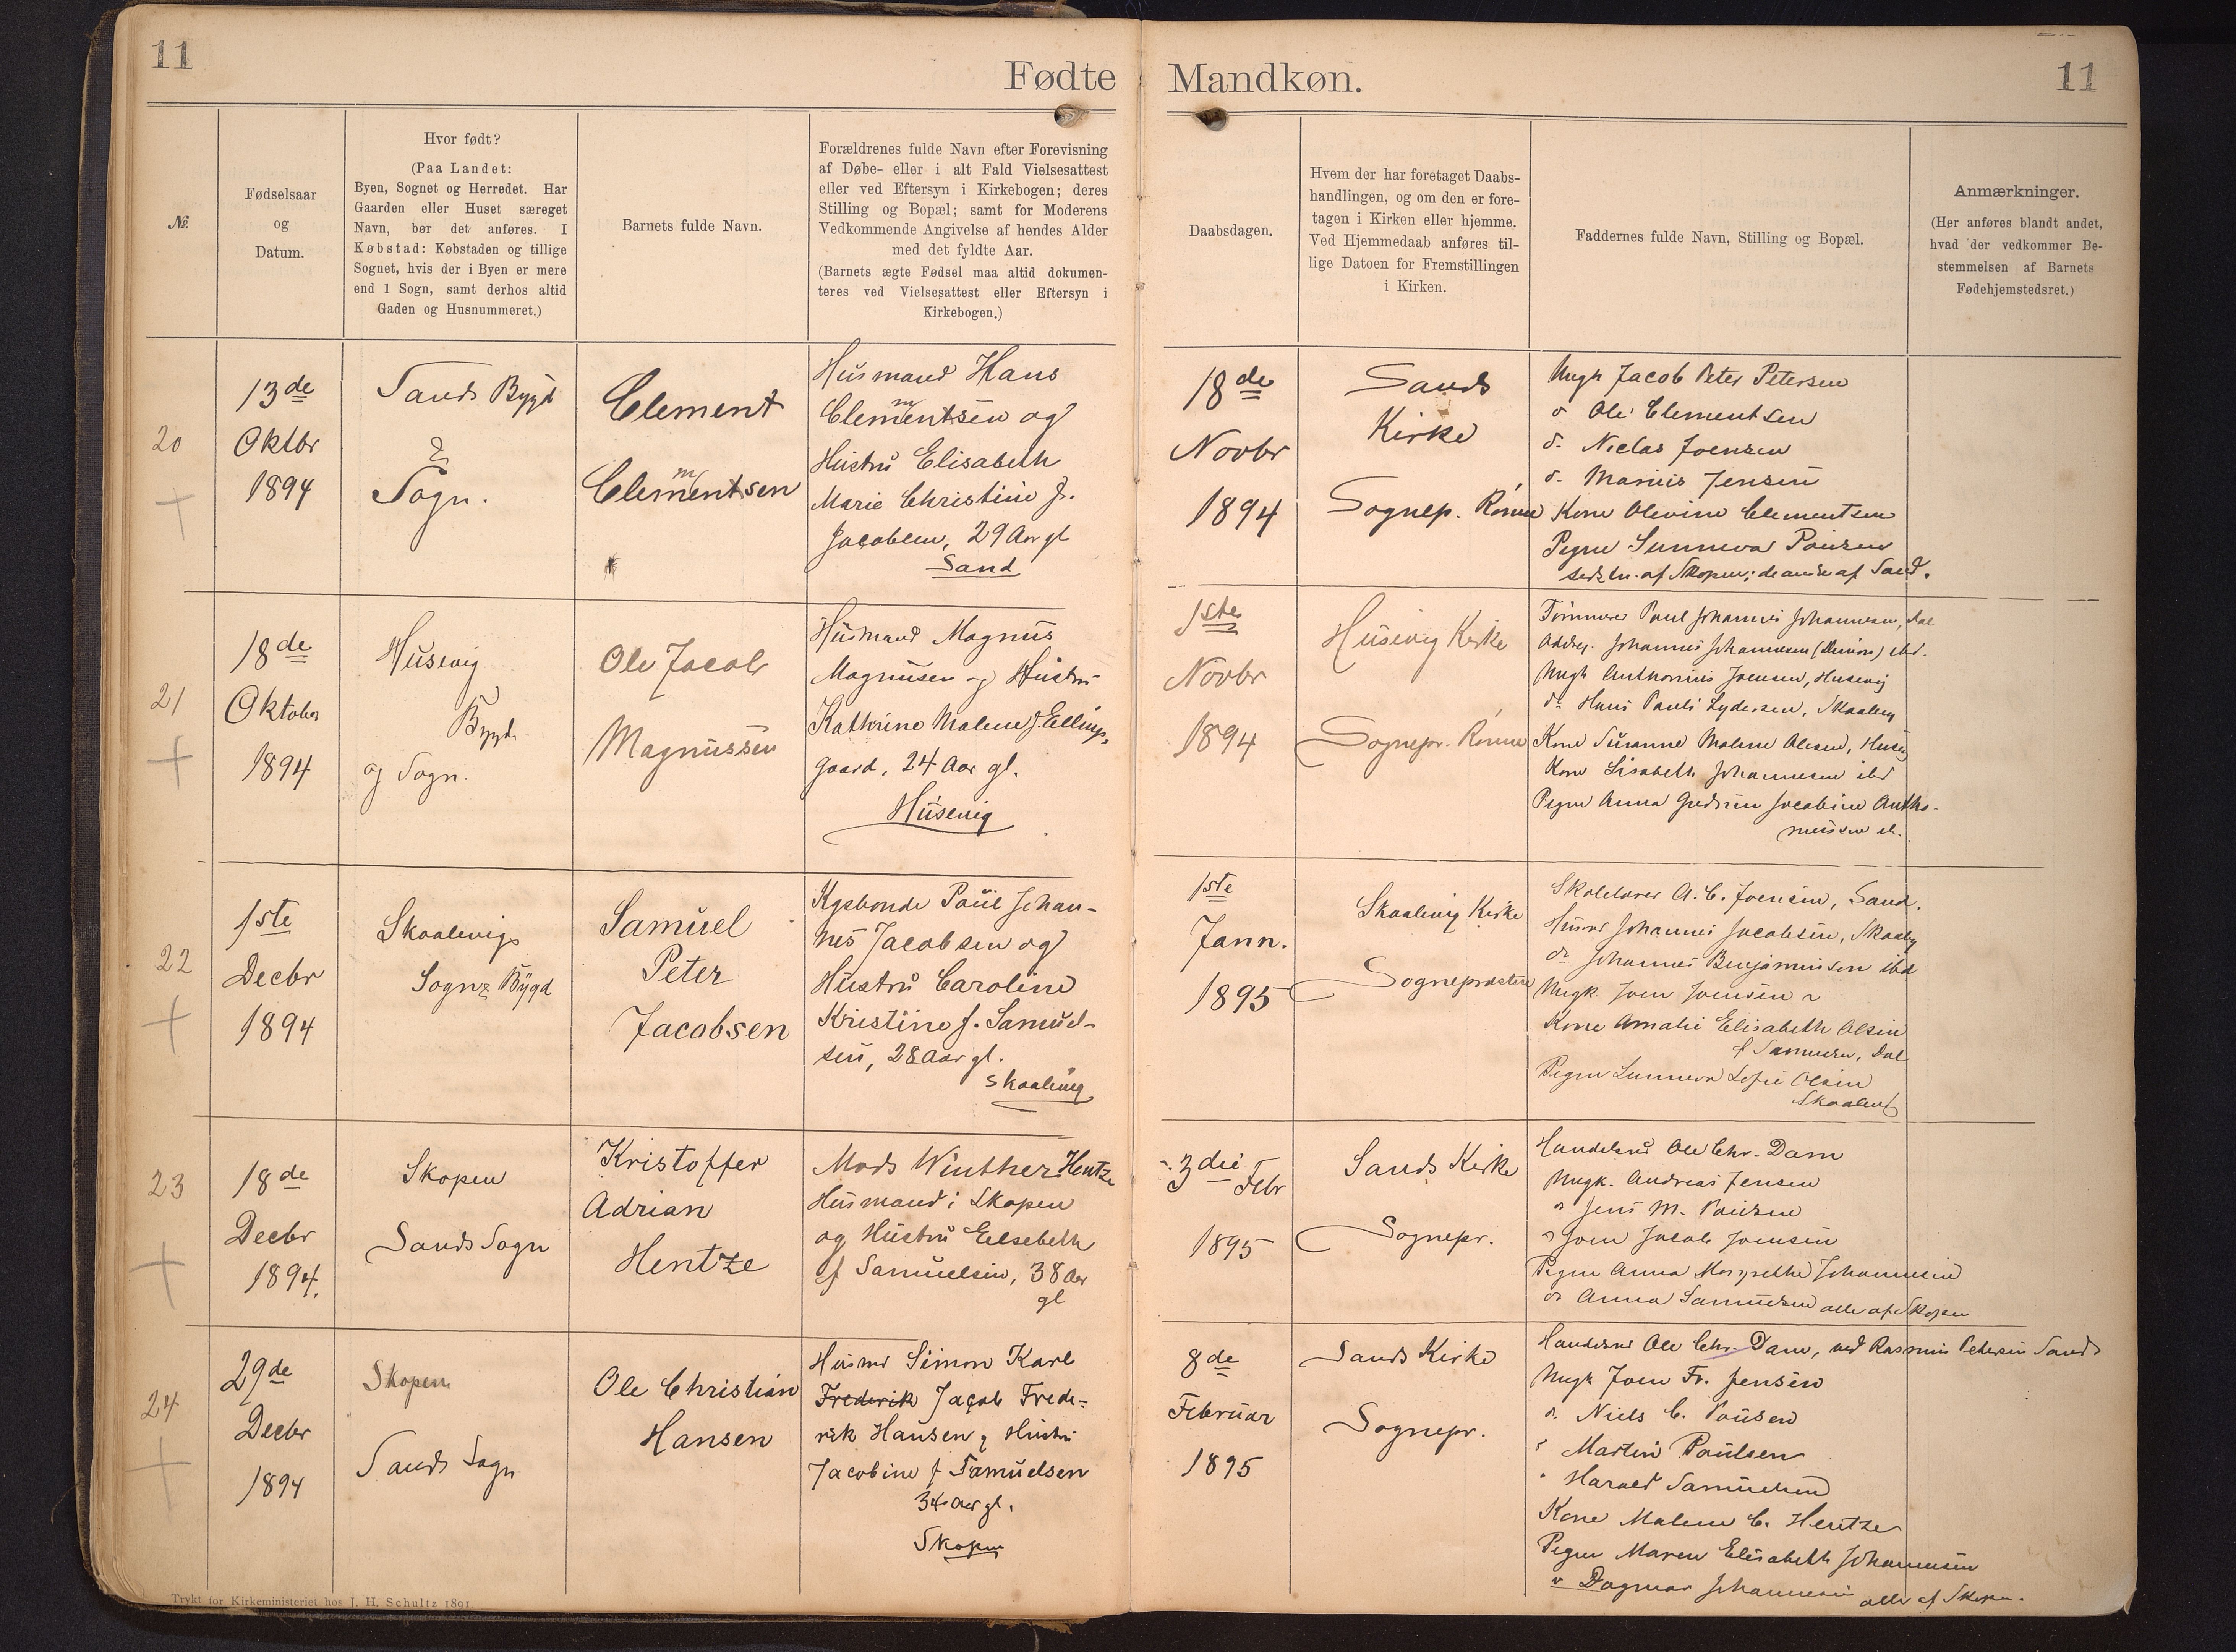 11
Fødte
Mandkøn.
11
№.
Fødselsaar
og
Datum.
Hvor født?
(Paa Landet:
Byen, Sognet og Herredet. Har
Gaarden eller Huset særeget
Navn, bør det anføres. I
Købstad: Købstaden og tillige
Sognet, hvis der i Byen er mere
end 1 Sogn, samt derhos altid
Gaden og Husnummeret.)
Barnets fulde Navn.
Forældrenes fulde Navn efter Forevisning
af Døbe- eller i alt Fald Vielsesattest
eller ved Eftersyn i Kirkebogen; deres
Stilling og Bopæl; samt for Moderens
Vedkommende Angivelse af hendes Alder
med det fyldte Aar.
(Barnets ægte Fødsel maa altid dokumen-
teres ved Vielsesattest eller Eftersyn i
Kirkebogen.)
Daabsdagen.
Hvem der har foretaget Daabs-
handlingen, og om den er fore-
tagen i Kirken eller hjemme.
Ved Hjemmedaab anføres til-
lige Datoen for Fremstillingen
i Kirken.
Faddernes fulde Navn, Stilling og Bopæl.
Anmærkninger.
(Her anføres blandt andet,
hvad der vedkommer Be-
stemmelsen af Barnets
Fødehjemstedsret.)
20
13de
Oktbr
1894
Sands Bygd
&
Sogn.
Clement
Clementsen
Husmand Hans
Clementsen og
Hustru Elisabeth
Marie Christine f.
Jacobsen, 29 Aar gl
Sand
18de
Novbr
1894
Sands
Kirke
Sognep. Rønne
Ungk Jacob Peter Petersen
do Ole Clementsen
d. Niclas Joensen
d. Marius Jensen
Kone Olevine Clementsen
Pigen Sunneva Poulsen
sidstn. af Skopen; de andre af Sand.
21
18de
Oktober
1894
Husevig
Bygd
og Sogn.
Ole Jacob
Magnussen
Husmand Magnus
Magnusen og Hustru
Kathrine Malene f. Ellings-
gaard, 24 Aar gl.
Husevig
1ste
Novbr
1894
Husevig Kirke
Sognepr. Rønne
Tømmerer Poul Johannes Johannesen, Dal
Johannes Johannesen ibd.
Ungk Anthonius Joensen, Husevig
do Hans Pauli Lydersen, Skaalevig
Kone Susanne Malene Olesen, Husevig
Kone Lisabeth Johannesen ibd
Pigen Anna Gudrun Jacobine Antho-
niussen ib.
22
1ste
Decbr
1894
Skaalevigs
Sogn & Bygd
Samuel
Peter
Jacobsen
Kgsbonde Poul Johan-
nes Jacobsen og
Hustru Caroline
Kristine f. Samuel-
sen, 28 Aar gl.
Skaalevig
1ste
Jann.
1895
Skaalevig Kirke
Sognepræsten
Skolelærer A. C. Joensen, Sand.
Husmd Johannes Jacobsen, Skaalevig
do Johannes Benjaminsen ibd
Ungk. Joen Joensen
Kone Amalie Elisabeth Olsen
f Samuelsen, Dal
Pigen Sunneva Sofie Olsen
Skaalevig
23
18de
Decbr
1894.
Skopen
Sands Sogn
Kristoffer
Adrian
Hentze
Mads Winther Hentze
Husmand i Skopen
og Hustru Elsebeth
f Samuelsen, 38 Aar
gl
3die Febr
1895
Sands Kirke
Sognepr.
Handelsmd Ole Chr. Dam
Ungk. Andreas Jensen
do Jens M. Poulsen
do Joen Jacob Joensen
Pigen Anna Margrethe Johannesen
do Anna Samuelsen alle af Skopen
24
29de
Decbr
1894
Skopen
Sands Sogn
Ole Christian
Hansen
Husmd Simon Karl
Frederik Jacob Frede-
rik Hansen & Hustru
Jacobine f Samuelsen
34 Aar gl.
Skopen
8de
Februar
1895
Sands Kirke
Sognepr.
Handelsmd Ole Chr. Dam, ved Rasmus Petersen Sand
Ungk Joen Fr. Jensen
d. Niels C. Poulsen
Martin Poulsen
Harald Samuelsen
Kone Malene C. Hentze
Pigen Maren Elisabeth Johannesen
do Dagmar Johannesen alle af Skopen.
Trykt for Kirkeministeriet hos J. H. Schultz 1891.